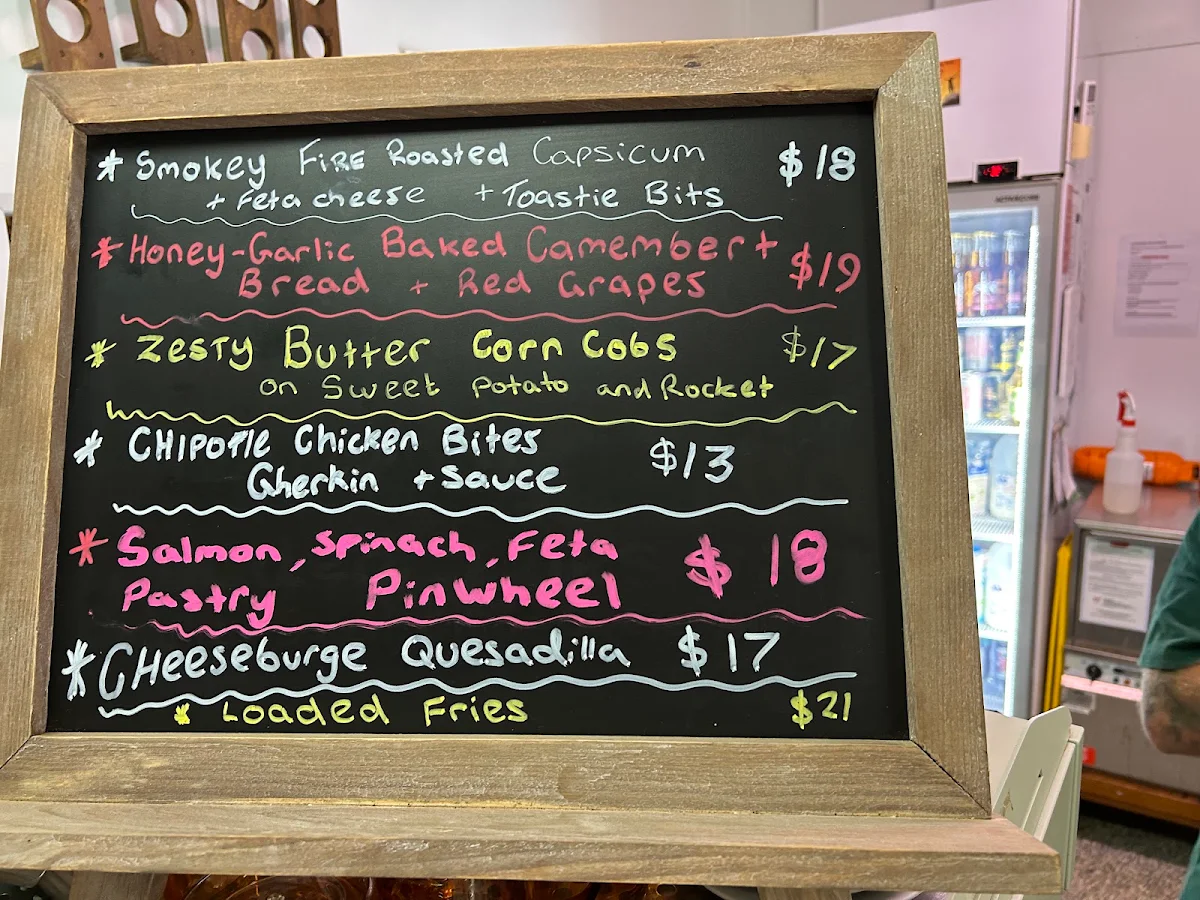 * Smokey Fire Roasted Capsicum $18
+ Feta cheese + Toastie Bits
* Honey-Garlic Baked Camembert + $19
Bread + Red Grapes
* Zesty Butter Corn Cobs $17
on Sweet Potato and Rocket
* CHIPOTLE Chicken Bites $13
Gherkin + Sauce
* Salmon, Spinach, Feta $18
Pastry Pinwheel
* CHeeseburge Quesadilla $17
* Loaded Fries $21